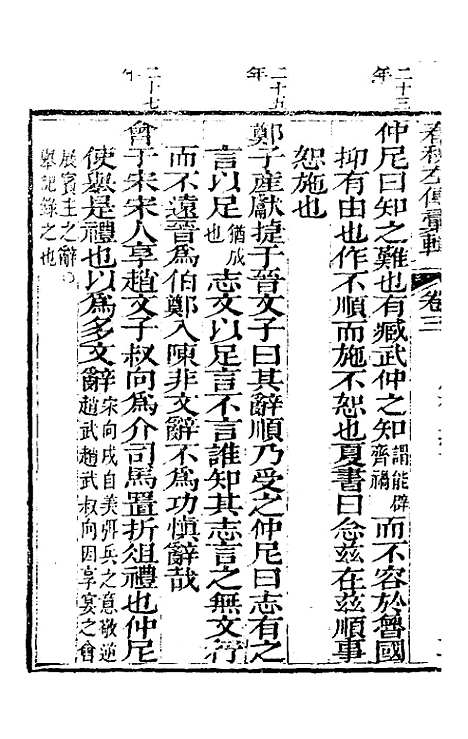 春秋左傳彙輯 卷三
二十三年
仲尼曰知之難也有臧武仲之知謂能辟齊禍而不容於魯國
抑有由也作不順而施不恕也夏書曰念茲在茲順事
恕施也
二十五年
鄭子產獻捷于晉文子曰其辭順乃受之仲尼曰志有之
言以足猶成也志文以足言不言誰知其志言之無文行
而不遠晉爲伯鄭入陳非文辭不爲功慎辭哉
二十七年
會于宋宋人享趙文子叔向爲介司馬置折俎禮也仲尼
使舉是禮也以爲多文辭宋向戌自美弭兵之意敬逆趙武趙武叔向因享宴之會
展賓主之辭
舉記錄之也